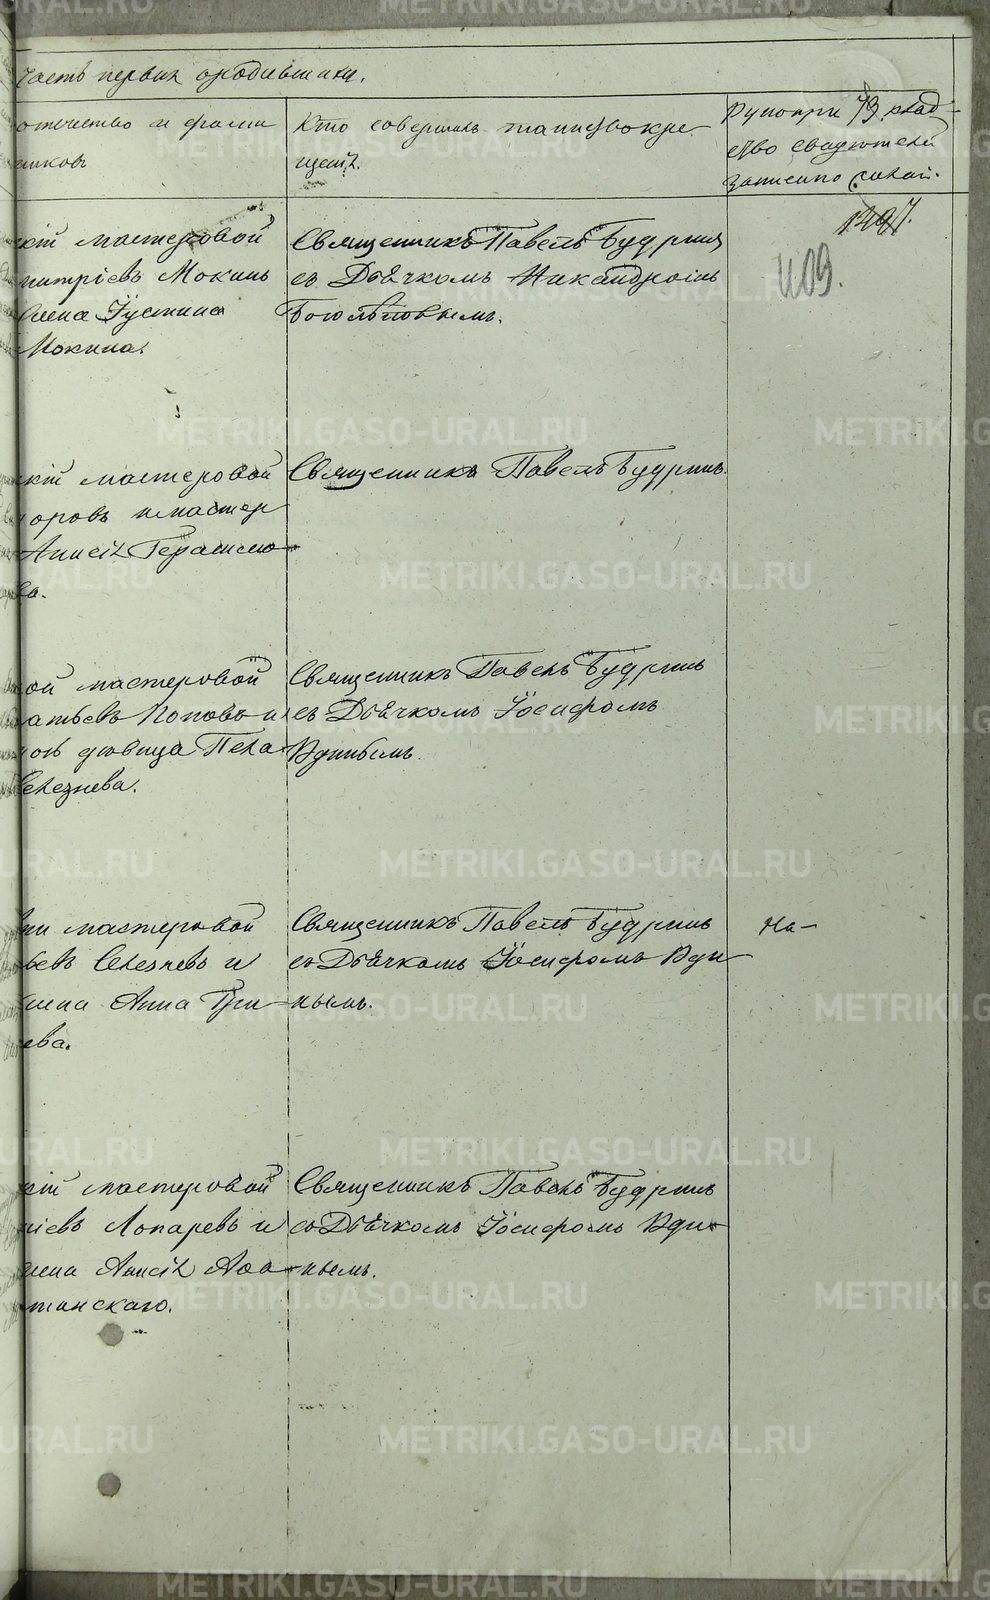 Часть первая о родившихся.
отечество и фами
Кто совершалъ таинство кре
щенiя.
Рукопри
ство свидетелей
записано
1407.
1109.
кiй мастеровой
митрiевъ Мокинъ
жена Iустина
Мокина.
Священникъ Павелъ Будринъ
съ Дьячкомъ Никандромъ
Боголѣповымъ.
кiй мастеровой
доровъ и мастер
Анисiя Герасимо
ва.
Священникъ Павелъ Будринъ.
кой мастеровой
атьевъ Поповъ и
кой дѣвица Пела
Селезнева.
Священникъ Павелъ Будринъ
съ Дьячкомъ Iосифомъ
Удинымъ.
мастеровой
ьевъ Селезневъ и
жена Анна Гри
ева.
Священникъ Павелъ Будринъ
съ Дьячкомъ Iосифомъ Уди
нымъ.
кiй мастеровой
рiевъ Лопаревъ и
жена Анисiя
тинскаго.
Священникъ Павелъ Будринъ
съ Дьячкомъ Iосифомъ Уди
нымъ.
METRIKI.GASO-URAL.RU